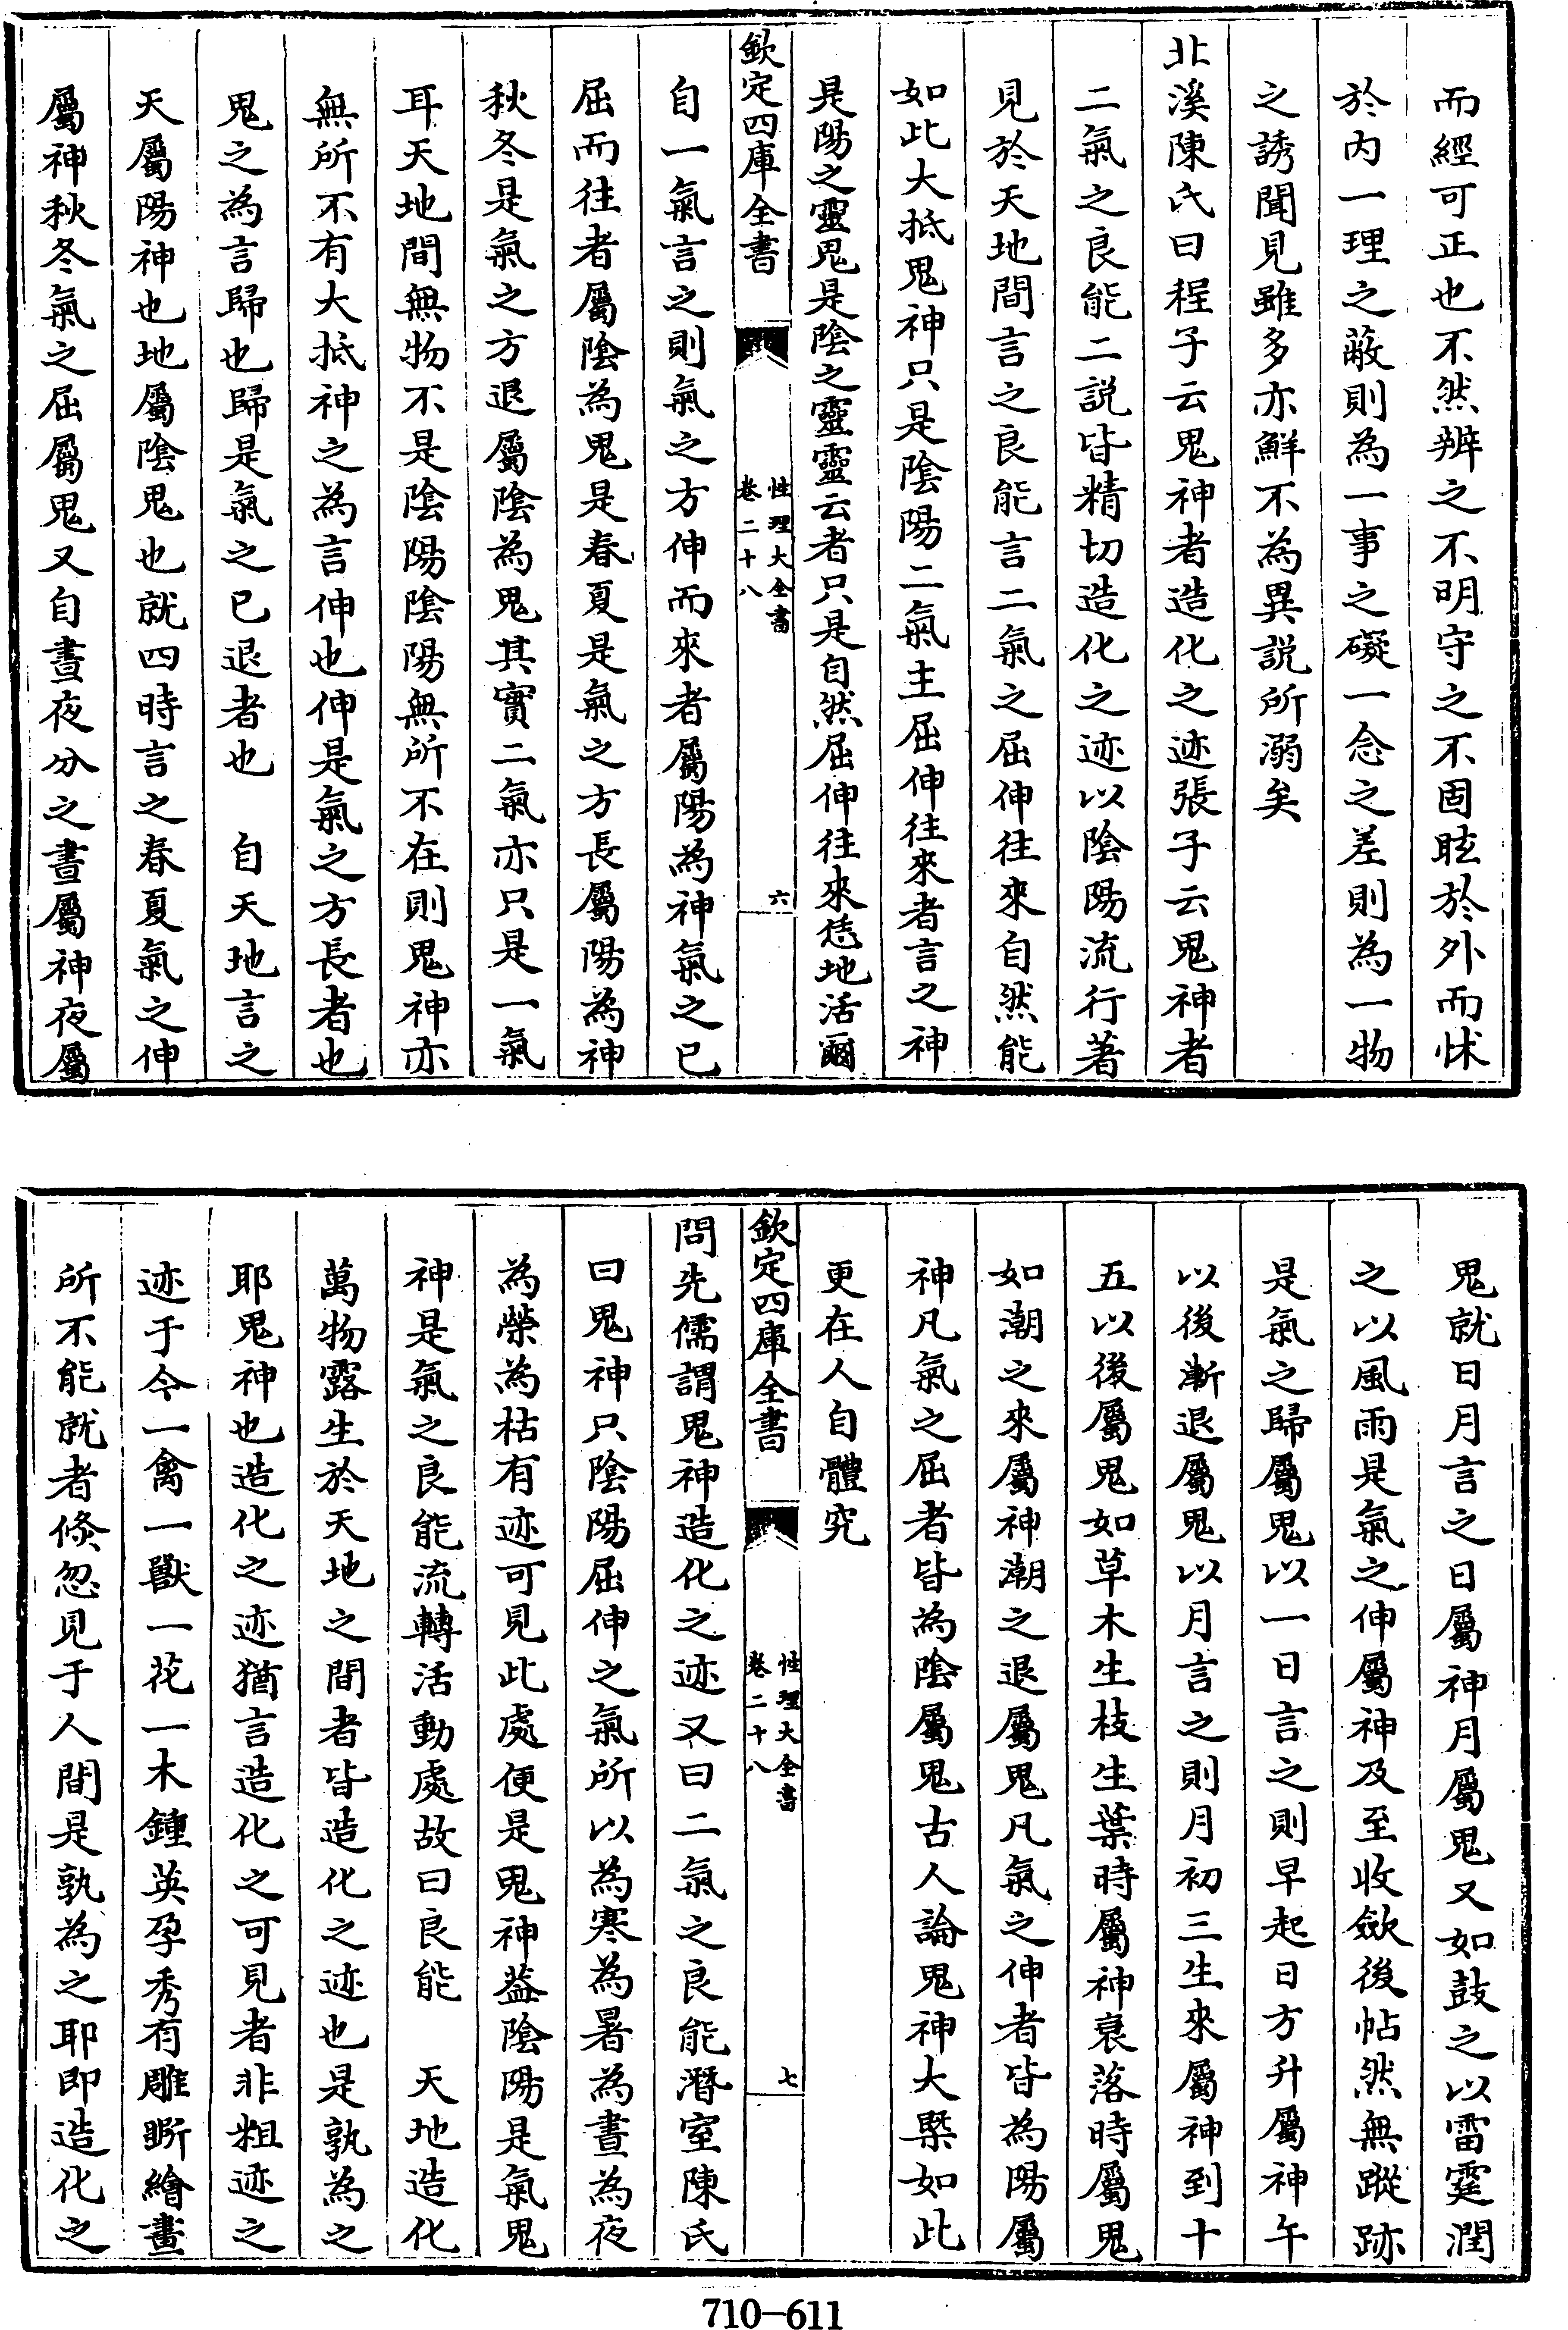 而經可正也不然辨之不明守之不固眩於外而怵
於内一理之蔽則為一事之礙一念之差則為一物
之誘聞見雖多亦鮮不為異説所溺矣
北溪陳氏曰程子云鬼神者造化之迹張子云鬼神者
二氣之良能二説皆精切造化之迹以陰陽流行著
見於天地間言之良能言二氣之屈伸往來自然能
如此大抵鬼神只是陰陽二氣主屈伸往來者言之神
是陽之靈鬼是陰之靈靈云者只是自然屈伸往來恁地活爾
欽定四庫全書
性理大全書
卷二十八
六
自一氣言之則氣之方伸而來者屬陽為神氣之已
屈而往者屬陰為鬼是春夏是氣之方長屬陽為神
秋冬是氣之方退屬陰為鬼其實二氣亦只是一氣
耳天地間無物不是陰陽陰陽無所不在則鬼神亦
無所不有大抵神之為言伸也伸是氣之方長者也
鬼之為言歸也歸是氣之已退者也　自天地言之
天屬陽神也地屬陰鬼也就四時言之春夏氣之伸
屬神秋冬氣之屈屬鬼又自晝夜分之晝屬神夜屬
鬼就日月言之日屬神月屬鬼又如鼓之以雷霆潤
之以風雨是氣之伸屬神及至收歛後帖然無蹤跡
是氣之歸屬鬼以一日言之則早起日方升屬神午
以後漸退屬鬼以月言之則月初三生來屬神到十
五以後屬鬼如草木生枝生葉時屬神衰落時屬鬼
如潮之來屬神潮之退屬鬼凡氣之伸者皆為陽屬
神凡氣之屈者皆為陰屬鬼古人論鬼神大槩如此
更在人自體究
欽定四庫全書
性理大全書
卷二十八
七
問先儒謂鬼神造化之迹又曰二氣之良能潛室陳氏
曰鬼神只陰陽屈伸之氣所以為寒為暑為晝為夜
為榮為枯有迹可見此處便是鬼神葢陰陽是氣鬼
神是氣之良能流轉活動處故曰良能　天地造化
萬物露生於天地之間者皆造化之迹也是孰為之
耶鬼神也造化之迹猶言造化之可見者非粗迹之
迹于今一禽一獸一花一木鍾英孕秀有雕斵繪畫
所不能就者倏忽見于人間是孰為之耶即造化之
710-611